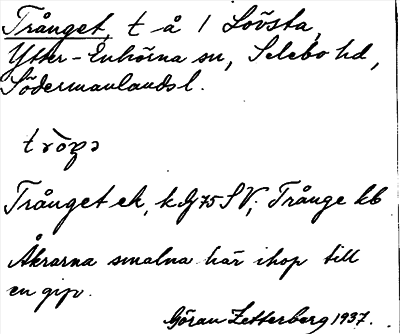 Trånget, t å 1 Lövsta,
Ytter-Enhörna sn, Selebo hd,
Södermanlands l.
Trånget ek, k G 75 SV; Trånge kb
Åkrarna smalna här ihop till
en gip.
Göran Zetterberg 1937.